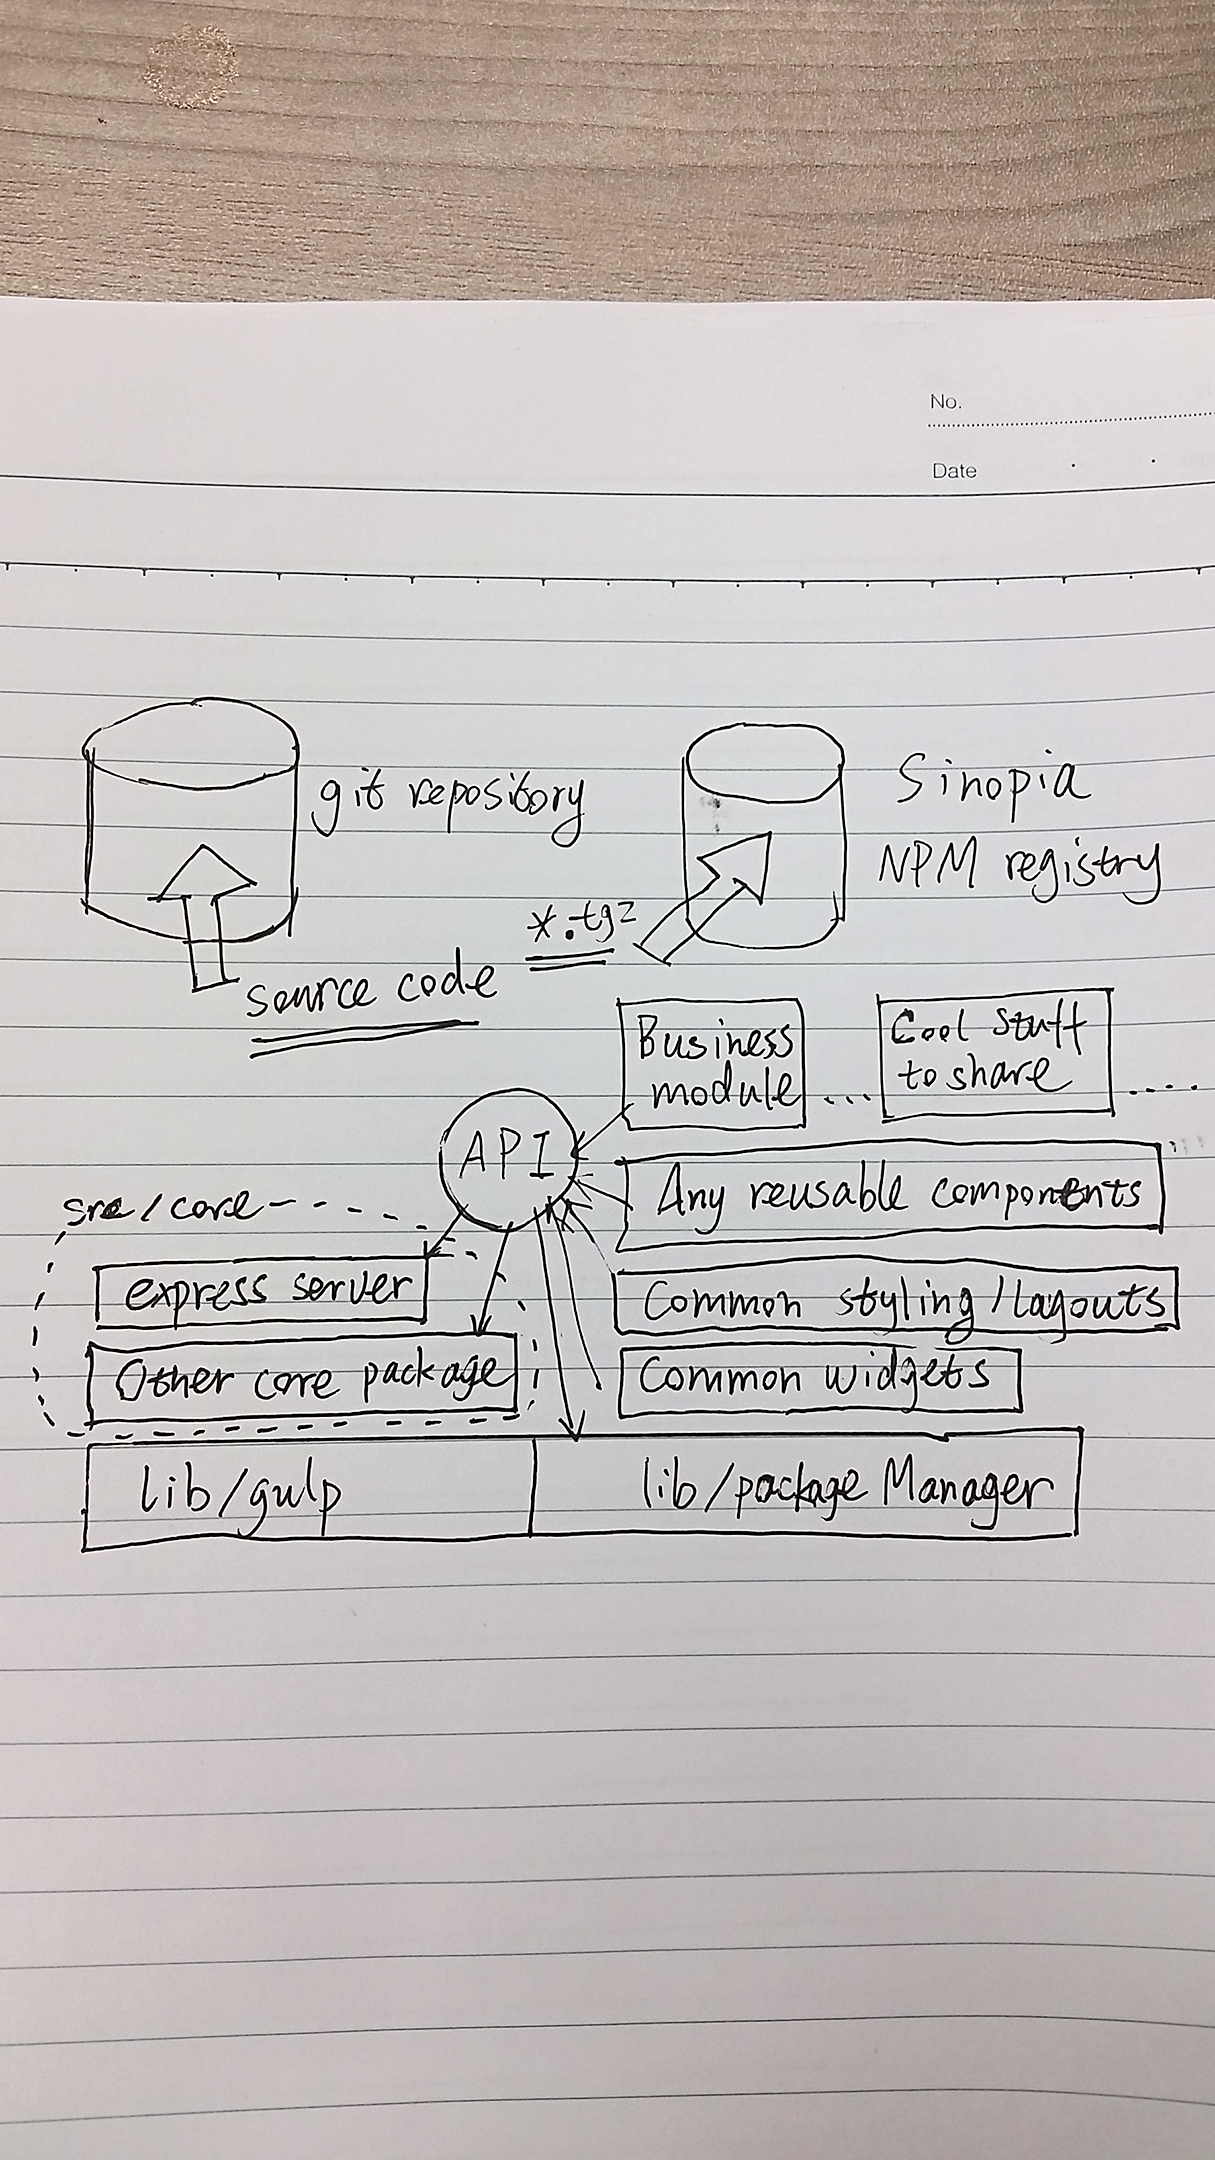 No.
Date
git repository
Sinopia
NPM registry
*.tgz
source code
Business
module
...
Cool stuff
to share
....
API
Any reusable components
src/core
express server
Common styling/Layouts
Other core package
Common widgets
lib/gulp
lib/package Manager